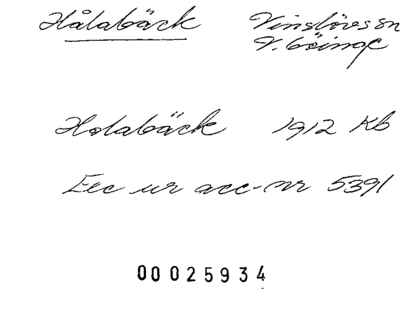 Hålabäck Vinslövs sn
V. Göinge
Holabäck 1912 Kb
Exc ur acc-nr 5391
00025934